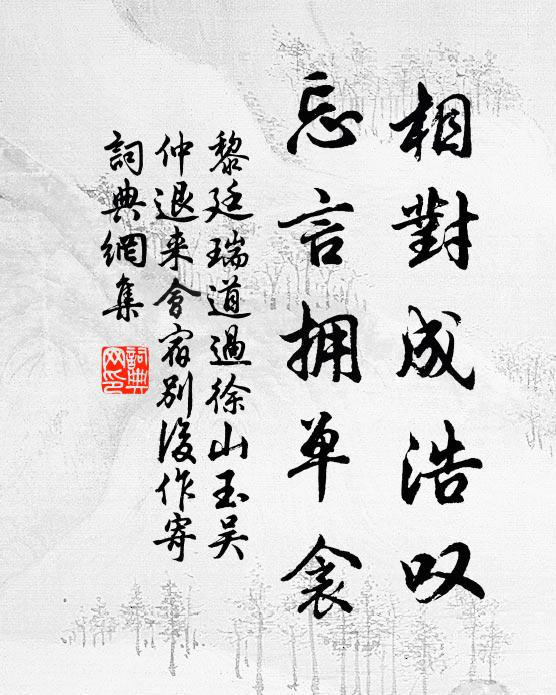 相對成浩叹
忘言拥单衾
黎廷瑞道過徐山玉吴
仲退来會宿别後作寄
詞典網集
詞典網印